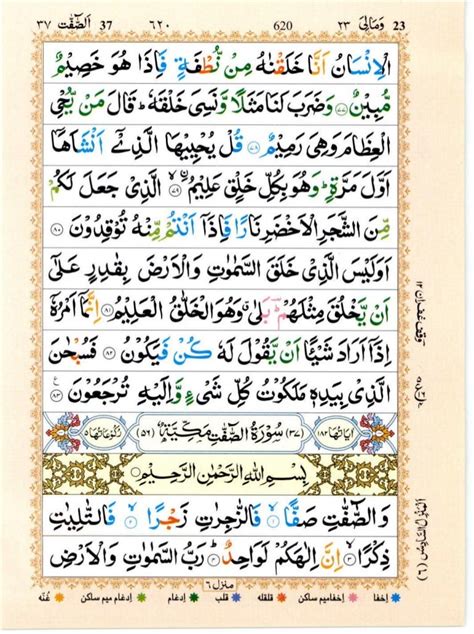 اَلصّٰٓفّٰت ٣٧ 37 ٦٢٠ 620 وَمَالِيَ ٢٣ 23
الۡاِنۡسَانُ اَنَّا خَلَقۡنٰهُ مِنۡ نُّطۡفَةٍ فَاِذَا هُوَ خَصِيۡمٌ
مُّبِيۡنٌ ﴿٧٧﴾ وَضَرَبَ لَنَا مَثَلًا وَّنَسِىَ خَلۡقَهٗ ؕ قَالَ مَنۡ يُّحۡىِ
الۡعِظَامَ وَهِىَ رَمِيۡمٌ ﴿٧٨﴾ قُلۡ يُحۡيِيۡهَا الَّذِىۡۤ اَنۡشَاَهَاۤ
اَوَّلَ مَرَّةٍ ؕ وَهُوَ بِكُلِّ خَلۡقٍ عَلِيۡمُ ﴿٧٩﴾ اۨلَّذِىۡ جَعَلَ لَكُمۡ
مِّنَ الشَّجَرِ الۡاَخۡضَرِ نَارًا فَاِذَاۤ اَنۡتُمۡ مِّنۡهُ تُوۡقِدُوۡنَ ﴿٨٠﴾
اَوَلَيۡسَ الَّذِىۡ خَلَقَ السَّمٰوٰتِ وَالۡاَرۡضَ بِقٰدِرٍ عَلٰٓى
اَنۡ يَّخۡلُقَ مِثۡلَهُمۡ ؕ بَلٰى وَهُوَ الۡخَلّٰقُ الۡعَلِيۡمُ ﴿٨١﴾ اِنَّمَاۤ اَمۡرُهٗۤ
اِذَاۤ اَرَادَ شَيۡــًٔا اَنۡ يَّقُوۡلَ لَهٗ كُنۡ فَيَكُوۡنُ ﴿٨٢﴾ فَسُبۡحٰنَ
الَّذِىۡ بِيَدِهٖ مَلَكُوۡتُ كُلِّ شَىۡءٍ وَّاِلَيۡهِ تُرۡجَعُوۡنَ ﴿٨٣﴾
اٰيَاتُهَا ١٨٢ (٣٧) سُوۡرَةُ الصّٰٓفّٰتِ مَكِّيَّةٌ (٥٦) رُكُوۡعَاتُهَا ٥
بِسۡمِ اللّٰهِ الرَّحۡمٰنِ الرَّحِيۡمِ
وَالصّٰٓفّٰتِ صَفًّا ﴿١﴾ فَالزّٰجِرٰتِ زَجۡرًا ﴿٢﴾ فَالتّٰلِيٰتِ
ذِكۡرًا ﴿٣﴾ اِنَّ اِلٰهَكُمۡ لَوَاحِدٌ ﴿٤﴾ رَبُّ السَّمٰوٰتِ وَالۡاَرۡضِ
وقف غفران ١٢
المنزل السادس (٦)
منزل ٦
اخفا اخفامیم ساکن قلقلہ قلب ادغام ادغام میم ساکن غُنّہ